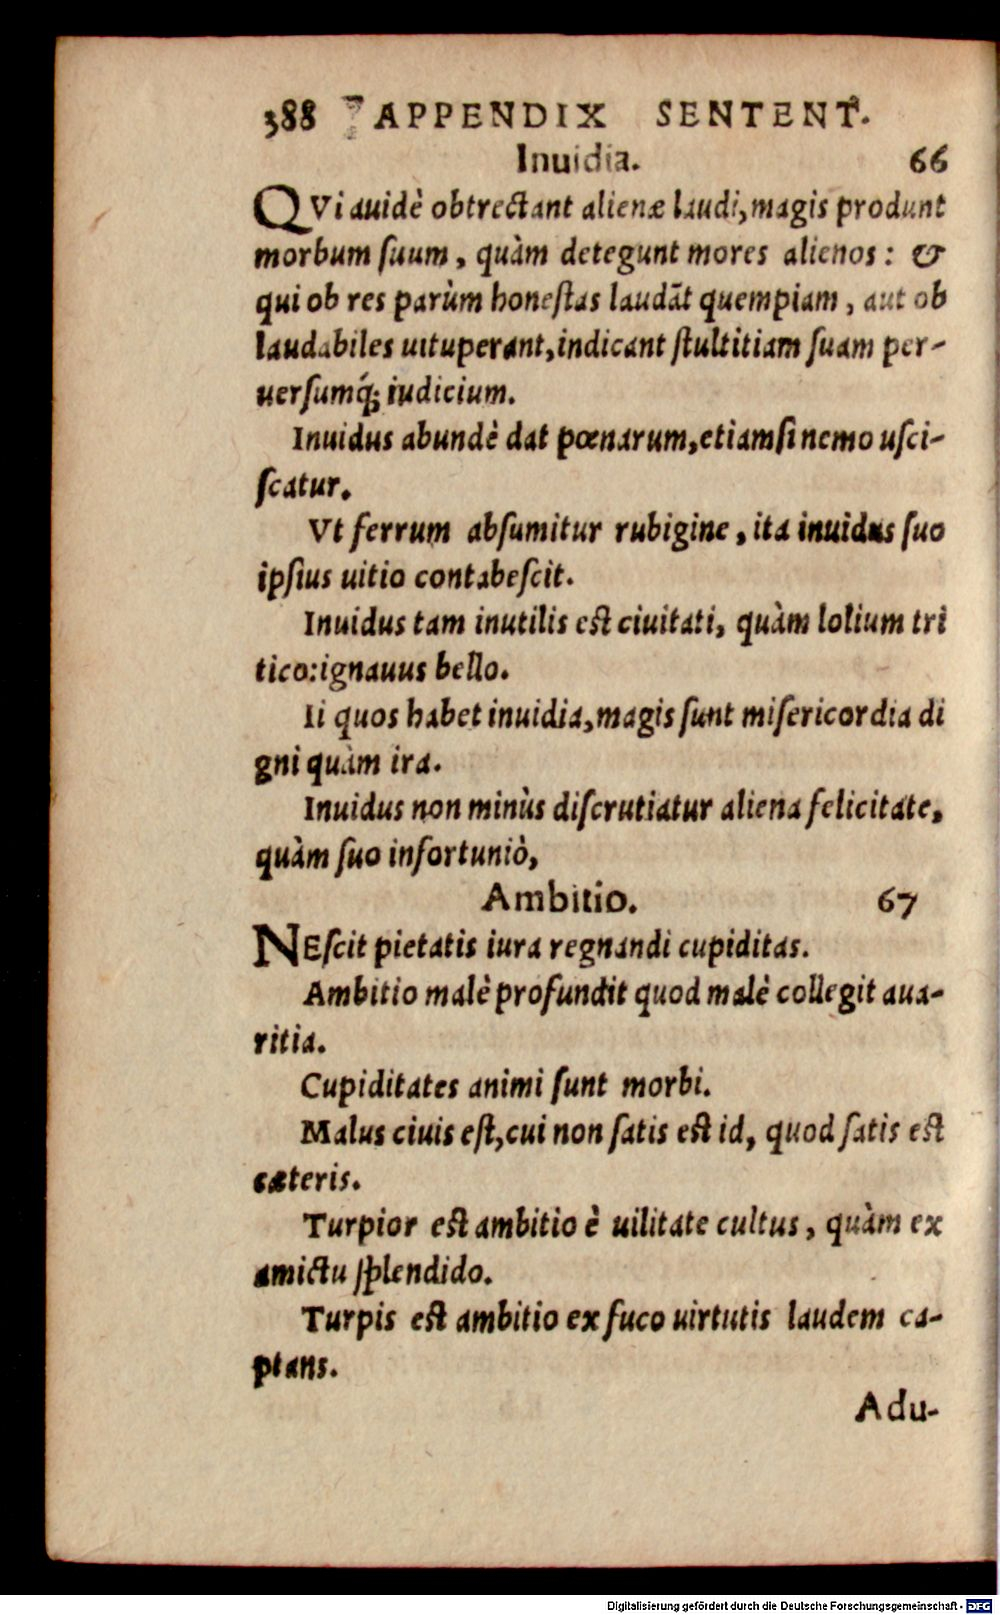 388 APPENDIX SENTENT.
Inuidia. 66
QVi auidè obtrectant alienæ laudi, magis produnt
morbum ſuum, quàm detegunt mores alienos: &
qui ob res parùm honeſtas laudāt quempiam, aut ob
laudabiles uituperant, indicant ſtultitiam ſuam per-
uerſumq́; iudicium.
Inuidus abundè dat pœnarum, etiamſi nemo ulci-
ſcatur.
Vt ferrum abſumitur rubigine, ita inuidus ſuo
ipſius uitio contabeſcit.
Inuidus tam inutilis eſt ciuitati, quàm lolium tri
tico: ignauus bello.
Ii quos habet inuidia, magis ſunt miſericordia di
gni quàm ira.
Inuidus non minùs diſcrutiatur aliena felicitate,
quàm ſuo infortuniò,
Ambitio. 67
NEſcit pietatis iura regnandi cupiditas.
Ambitio malè profundit quod malè collegit aua-
ritia.
Cupiditates animi ſunt morbi.
Malus ciuis eſt, cui non ſatis eſt id, quod ſatis eſt
cæteris.
Turpior eſt ambitio è uilitate cultus, quàm ex
amictu ſplendido.
Turpis eſt ambitio ex fuco uirtutis laudem ca-
ptans.
Adu-
Digitalisierung gefördert durch die Deutsche Forschungsgemeinschaft - DFG